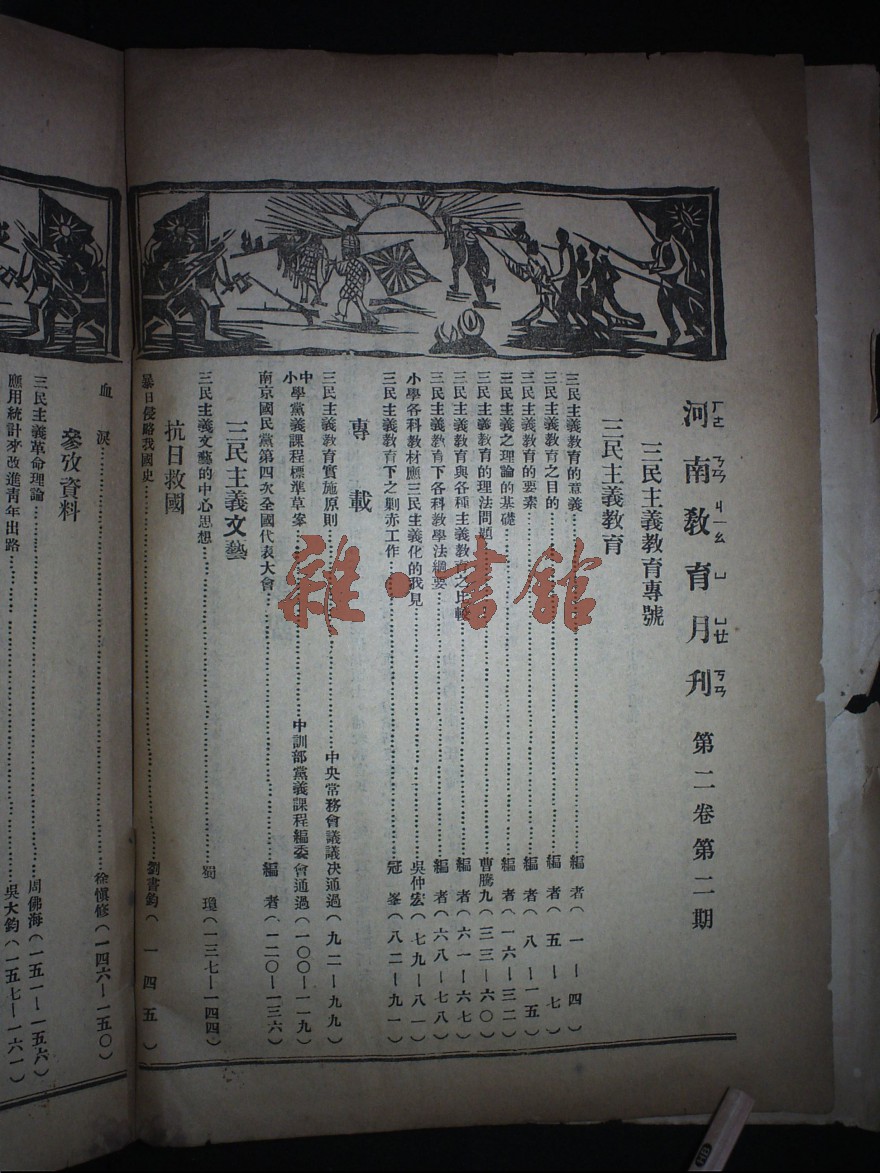 河南教育月刊 第二卷第二期
ㄏㄜ ㄋㄢ ㄐㄧㄠ ㄩ ㄩㄝ ㄎㄢ
三民主義教育專號
三民主義教育
三民主義教育的意義……編者(一—四)
三民主義教育之目的……編者(五—七)
三民主義教育的要素……編者(八—一五)
三民主義之理論的基礎……編者(一六—三二)
三民主義教育的理法問題……曹騰九(三三—六〇)
三民主義教育與各種主義教育之比較……編者(六一—六七)
三民主義教育下各科教學法綱要……編者(六八—七八)
小學各科教材應三民主義化的我見……吳仲宏(七九—八一)
三民主義教育下之剿赤工作……冠峯(八二—九一)
專載
三民主義教育實施原則……中央常務會議議決通過(九二—九九)
中小學黨義課程標準草案……中訓部黨義課程編委會通過(一〇〇—一一九)
南京國民黨第四次全國代表大會……編者(一二〇—一三六)
三民主義文藝
三民主義文藝的中心思想……蜀瓊(一三七—一四四)
抗日救國
暴日侵略我國史……劉書鈞(一四五)
血淚……徐愼修(一四六—一五〇)
參攷資料
三民主義革命理論……周佛海(一五一—一五六)
應用統計來改進靑年出路……吳大鈞(一五七—一六一)
雜·書館
HB